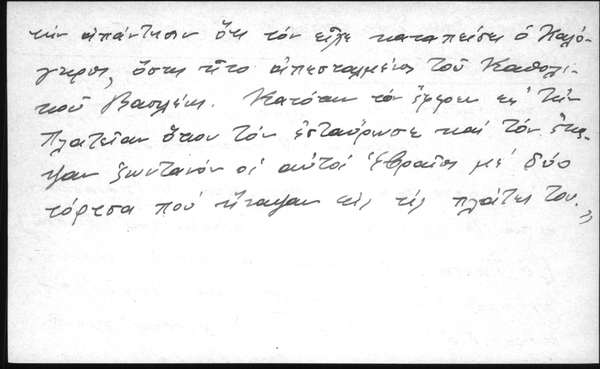 τὴν ἀπάντησιν ὅτι τὸν εἶχε καταπείσει ὁ Καλό-
γηρος, ὅστις ἦτο ἀπεσταλμένος τοῦ Καθολι-
κοῦ Βασιλέως. Κατόπιν τὸν ἔφερεν εἰς τὴν
Πλατεῖαν ὅπου τὸν ἐσταύρωσε καὶ τὸν ἔκα-
ψαν ζωντανόν οἱ αὐτοί Ἑβραῖοι μέ δύο
τόρτσα πού ἤναψαν εἰς τίς πλάτες του.»